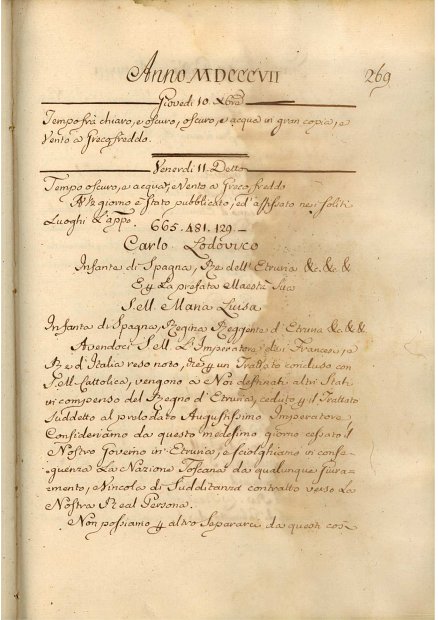 Anno MDCCCVII
269
Giovedi 10. Xbre
Tempo frà chiaro, e oscuro, oscuro, e acqua in gran copia, e
Vento a Greco freddo.
Venerdi 11. Detto
Tempo oscuro, e acqua, e Vento a Greco, freddo
giorno e stato pubblicato, ed' affisso nei soliti
Luoghi L'app.º 665. 481. 129. —
Carlo Lodovico
Infante di Spagna, Re dell' Etruria &c. &c. &c.
E p. La prefata Maestà Sua
S. e M. Maria Luisa
Infanta di Spagna, Regina Reggente d'Etruria &c. &c. &c.
Avendoci S. e M. L'Imperatore de i Francesi, e
Re d'Italia reso noto, che p. un Trattato concluso con
S. e M. Cattolica, vengono a Noi destinati altri Stati
in compenso del Regno d'Etruria, ceduto p. il Trattato
Suddetto al prelodato Augustissimo Imperatore
Consideriamo da questo medesimo giorno cessato il
Nostro Governo in Etruria, e sciolghiamo in conse-
guenza La Nazione Toscana da qualunque Giura-
mento, e Vincolo di Sudditanza contratto verso La
Nostra Real Persona.
Non possiamo p. altro Separarci da questi così